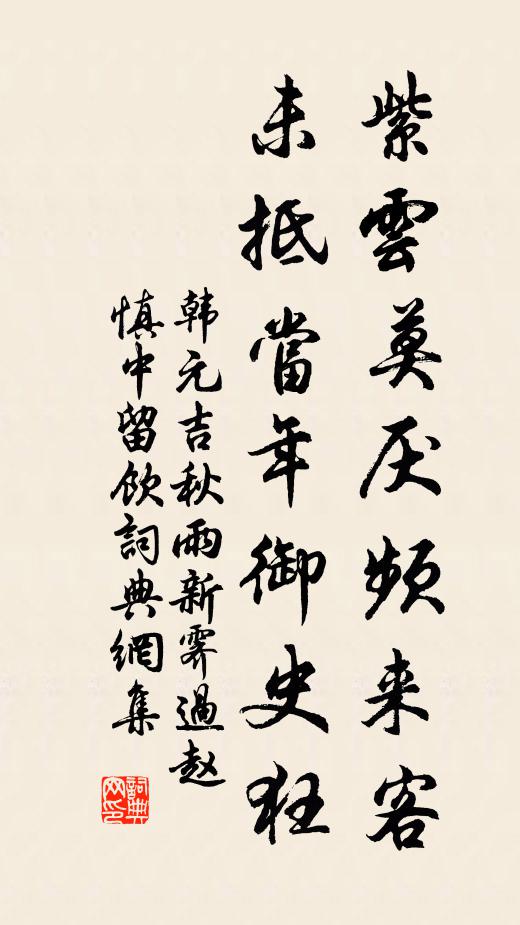 紫雲莫厌頻来客
未抵當年御史狂
韩元吉秋雨新霽過赵
慎中留飲詞典網集
詞典网印